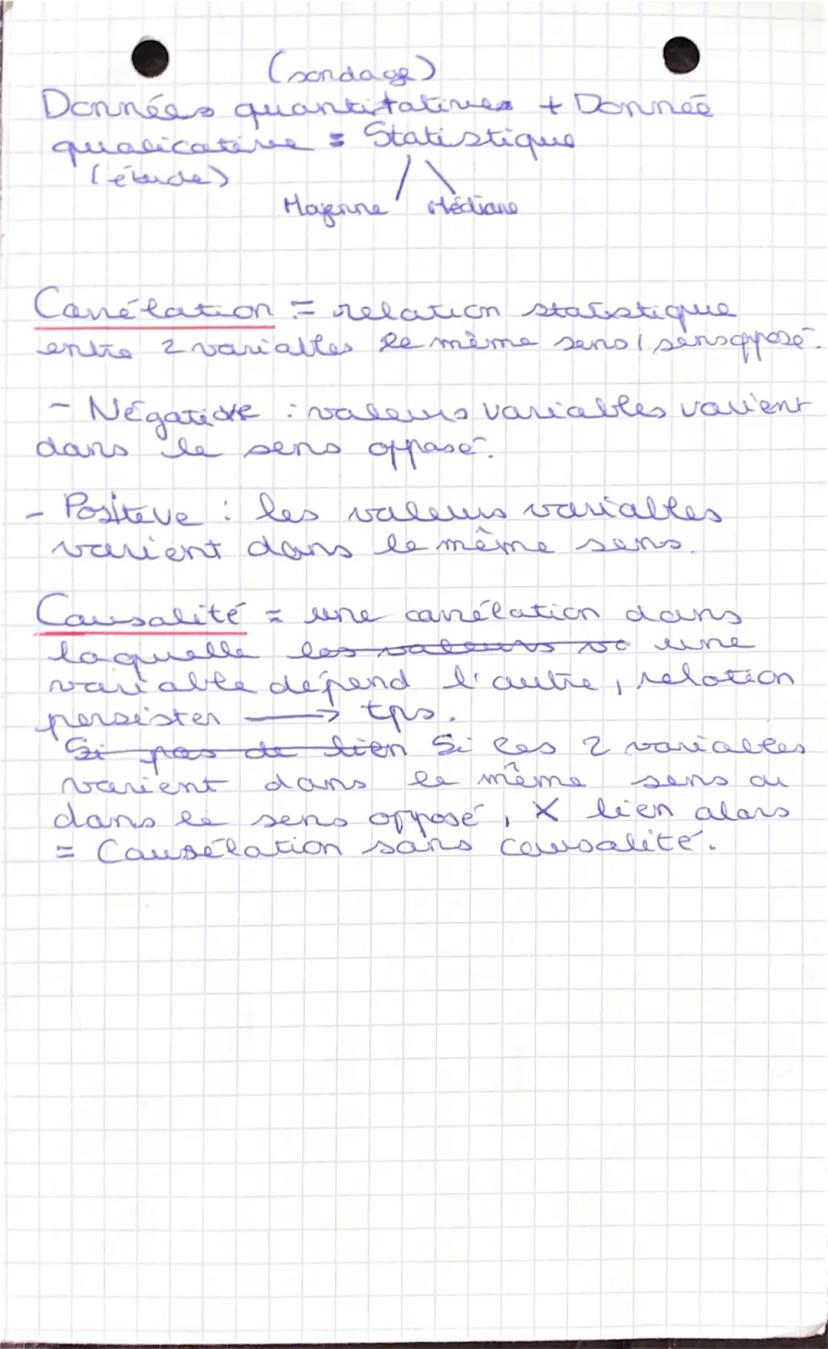 (sondage)
Données quantitatives + Donnée
qualicative = Statistique
(étude)
Moyenne Médiane
Corrélation = relation statistique
entre 2 variables le même sens / sens opposé.
- Négative : valeurs variables varient
dans le sens opposé.
- Positive : les valeurs variables
varient dans le même sens.
Causalité = une corrélation dans
laquelle les valeurs va une
variable dépend l'autre, relation
persister → tps.
Si pas de lien Si les 2 variables
varient dans le même sens ou
dans le sens opposé, X lien alors
= Causélation sans causalité.